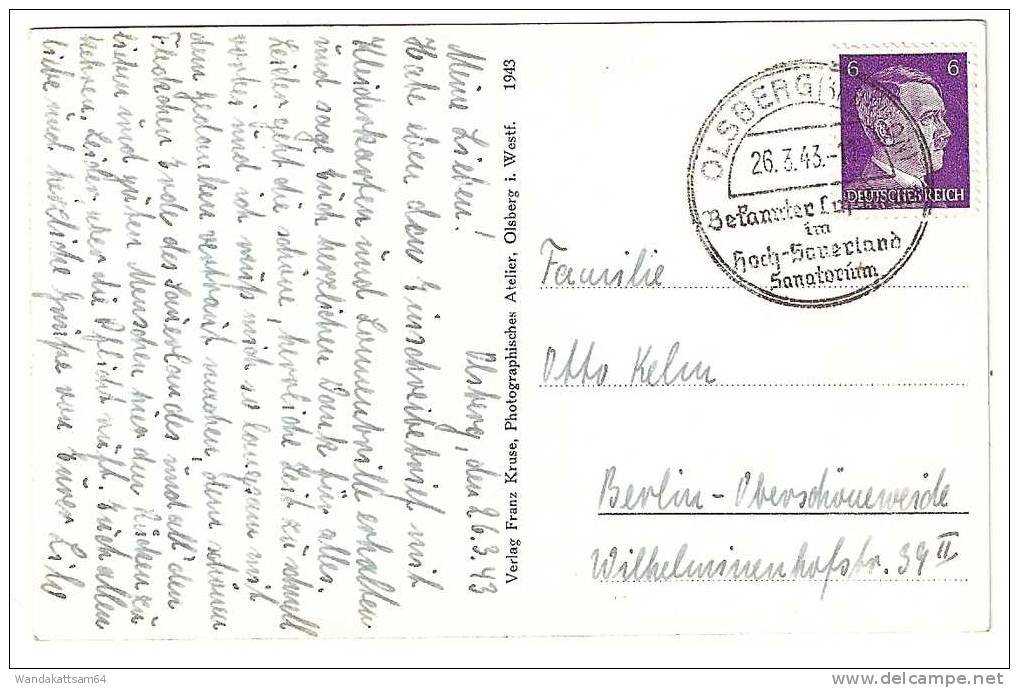 Olsberg, den 26.3.43
Meine Lieben!
Habe eben den Einschreibebrief mit
Kleiderkarten und Sonnenbrille erhalten
und sage Euch herzlichen Dank für alles.
Leider geht die schöne, herrliche Zeit zu schnell
vorbei und ich muß mich so langsam mit
dem Gedanken vertraut machen, dem schönen
Fleckchen Erde des Sauerlandes und all' den
lieben und guten Menschen hier den Rücken zu
kehren. Leider, aber die Pflicht ruft. Euch allen
liebe und herzliche Grüße von Eurer Lilo
Verlag Franz Kruse, Photographisches Atelier, Olsberg i. Westf. 1943
6 6
DEUTSCHES REICH
OLSBERG
26.3.43.-
Bekannter
im
Hoch-Sauerland
Sanatorium
Familie
Otto Kelm
Berlin-Oberschöneweide
Wilhelminenhofstr. 39 II
Wandakattsam64
delcampe.net